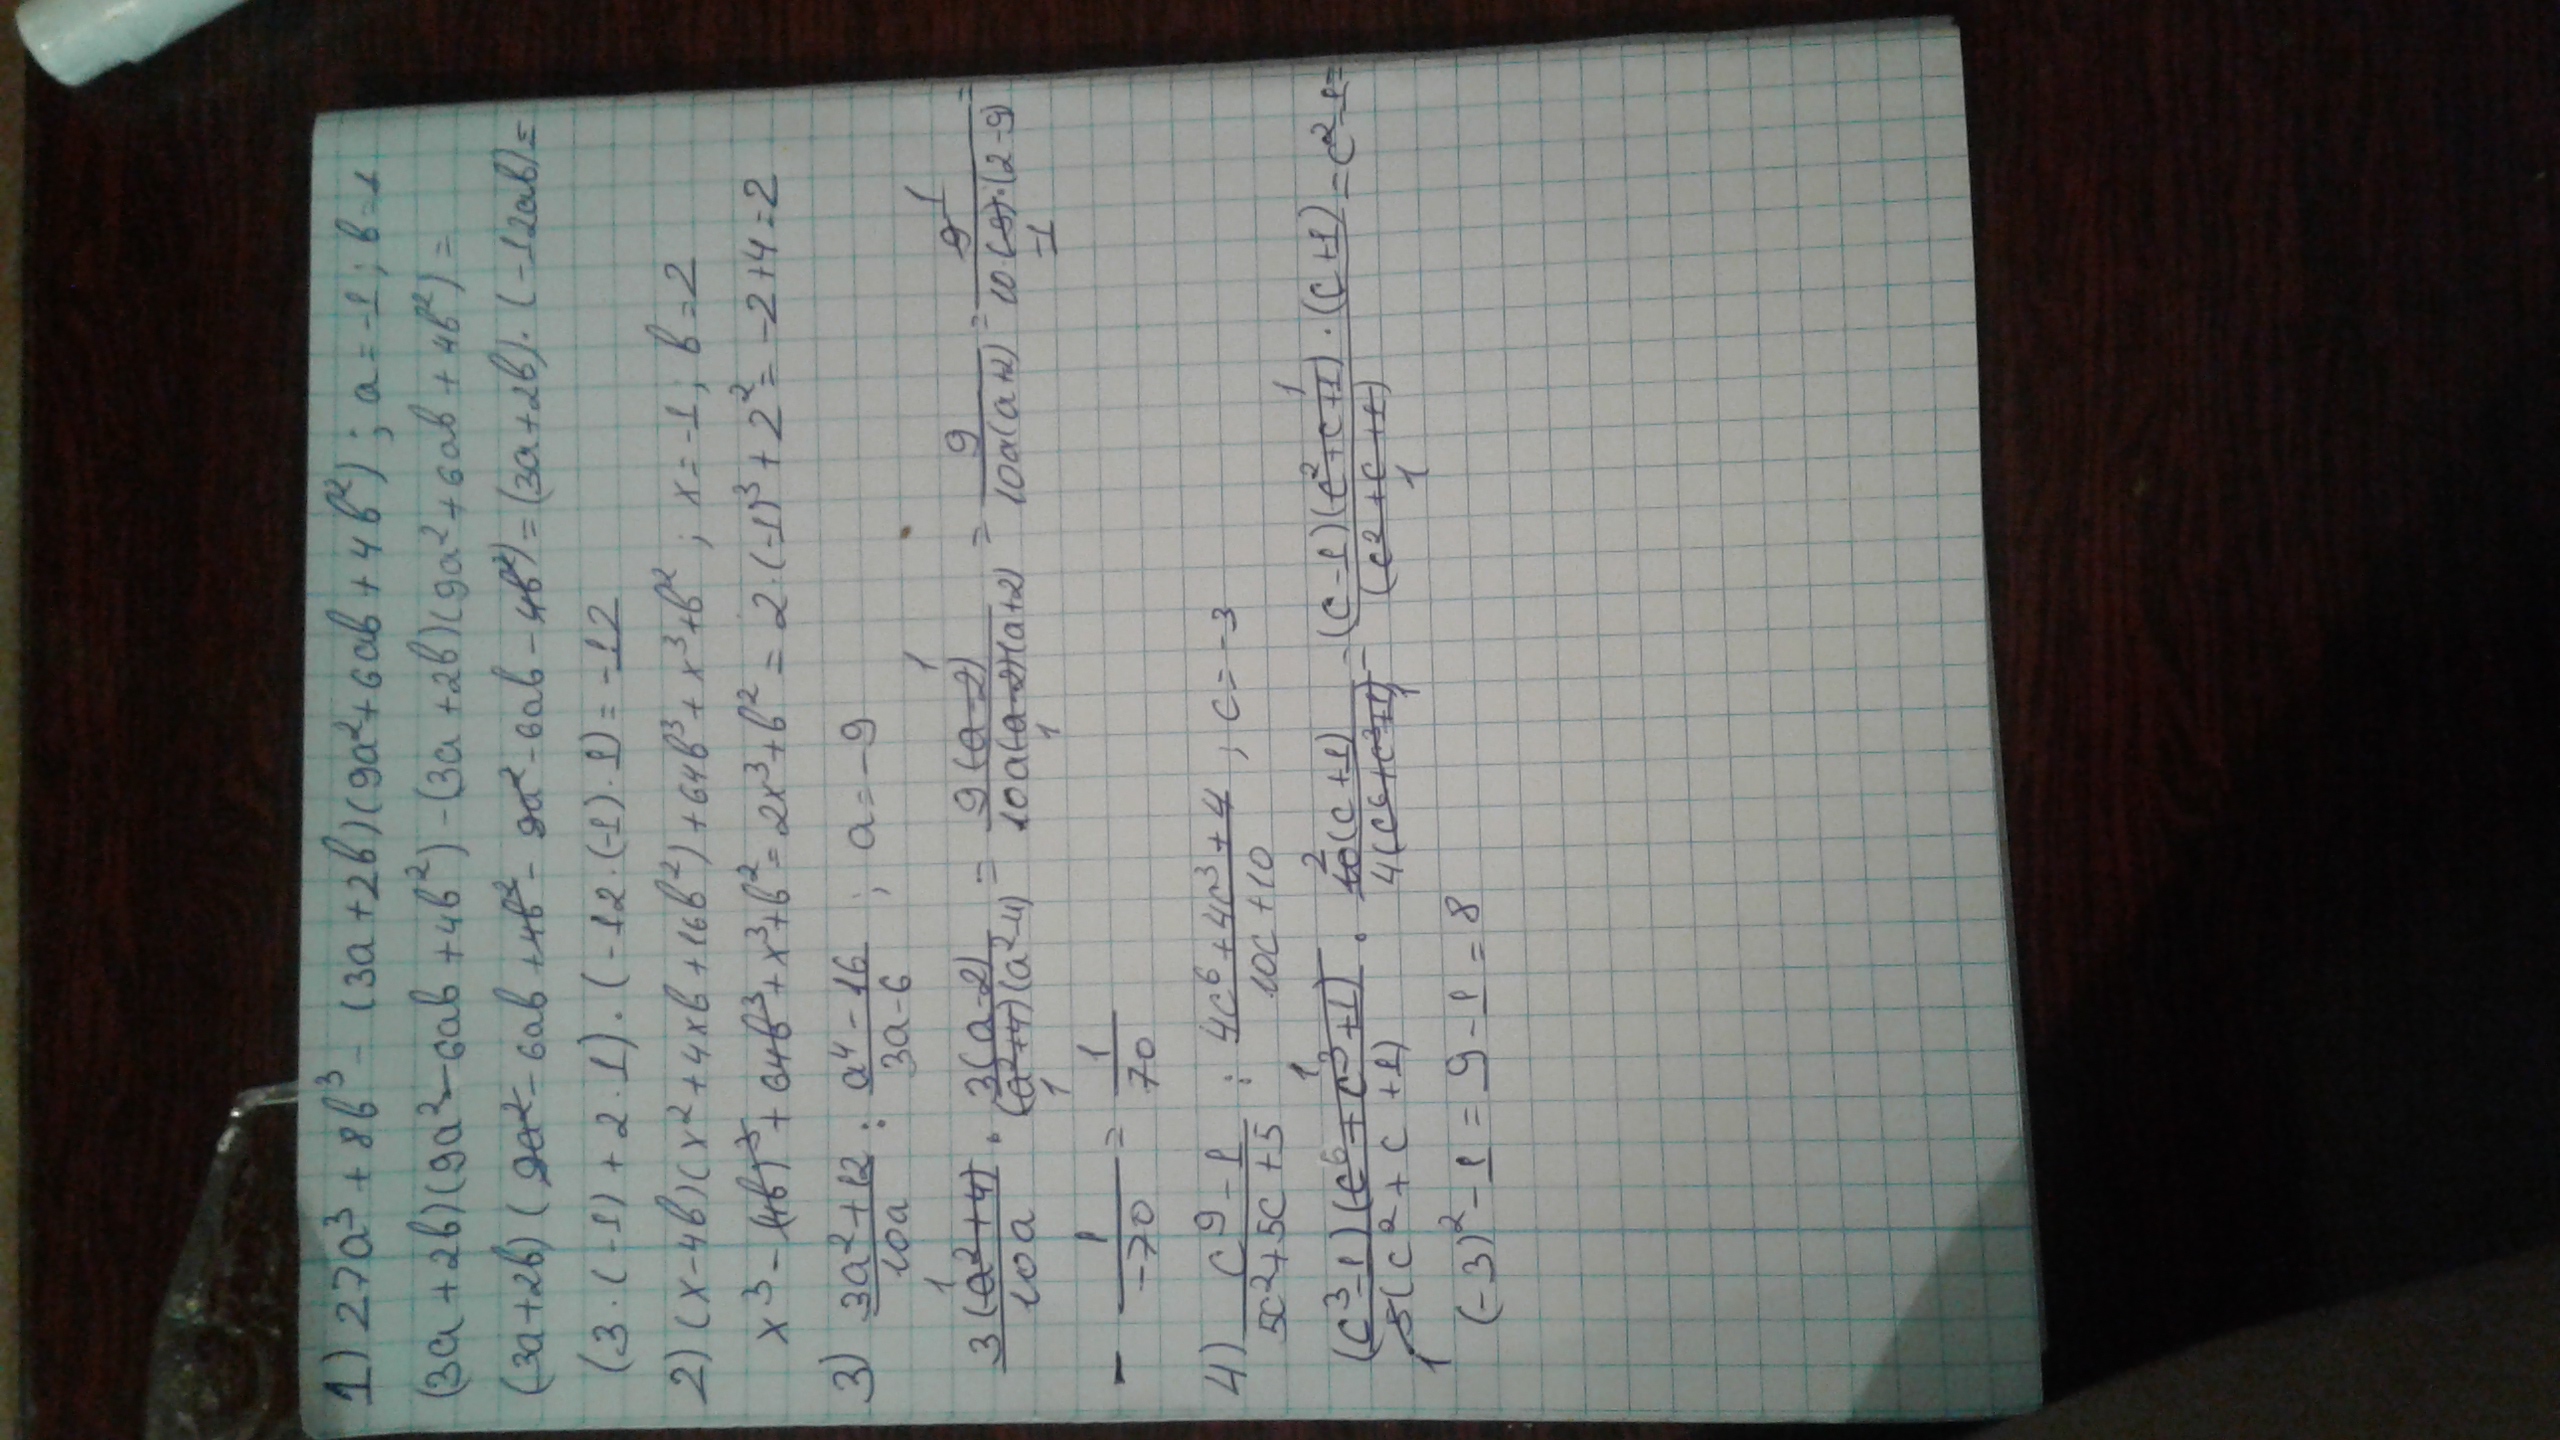 1) 27a³ + 8b³ - (3a + 2b)(9a² + 6ab + 4b²) ; a = -1 ; b = 1
(3a + 2b)(9a² - 6ab + 4b²) - (3a + 2b)(9a² + 6ab + 4b²) =
(3a + 2b)(9a² - 6ab + 4b² - 9a² - 6ab - 4b²) = (3a + 2b) · (-12ab) =
(3 · (-1) + 2 · 1) · (-12 · (-1) · 1) = -12
2) (x - 4b)(x² + 4xb + 16b²) + 64b³ + x³ + b² ; x = -1 ; b = 2
x³ - (4b)³ + 64b³ + x³ + b² = 2x³ + b² = 2 · (-1)³ + 2² = -2 + 4 = 2
3) (3a² + 12)/(10a) : (a⁴ - 16)/(3a - 6) ; a = -9
3(a² + 4)/(10a) · 3(a - 2)/((a² + 4)(a² - 4)) = 9(a - 2)/(10a(a - 2)(a + 2)) = 9/(10a(a + 2)) = 9/(10 · (-9) · (2 - 9)) =
- 1/(-70) = 1/70
4) (c⁹ - 1)/(5c² + 5c + 5) : (4c⁶ + 4c³ + 4)/(10c + 10) ; c = -3
(c³ - 1)(c⁶ + c³ + 1)/(5(c² + c + 1)) · 10(c + 1)/(4(c⁶ + c³ + 1)) = (c - 1)(c² + c + 1) · (c + 1)/(c² + c + 1) = c² - 1 =
(-3)² - 1 = 9 - 1 = 8